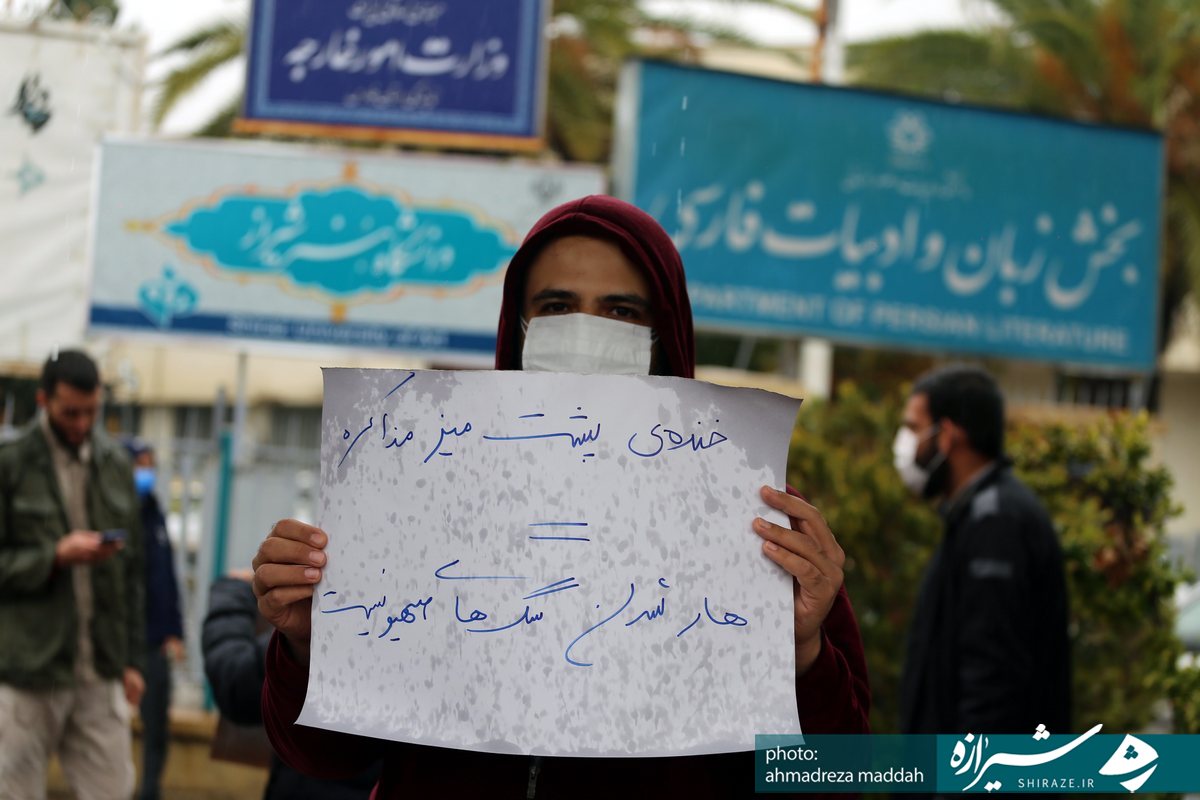 وزارت امور خارجه
دانشگاه هنر شیراز
بخش زبان و ادبیات فارسی
DEPARTMENT OF PERSIAN LITERATURE
خنده‌ی پشت میز مذاکره
=
هار شدن سگ های صهیونیست
photo:
ahmadreza maddah
شیرازه
SHIRAZE.IR